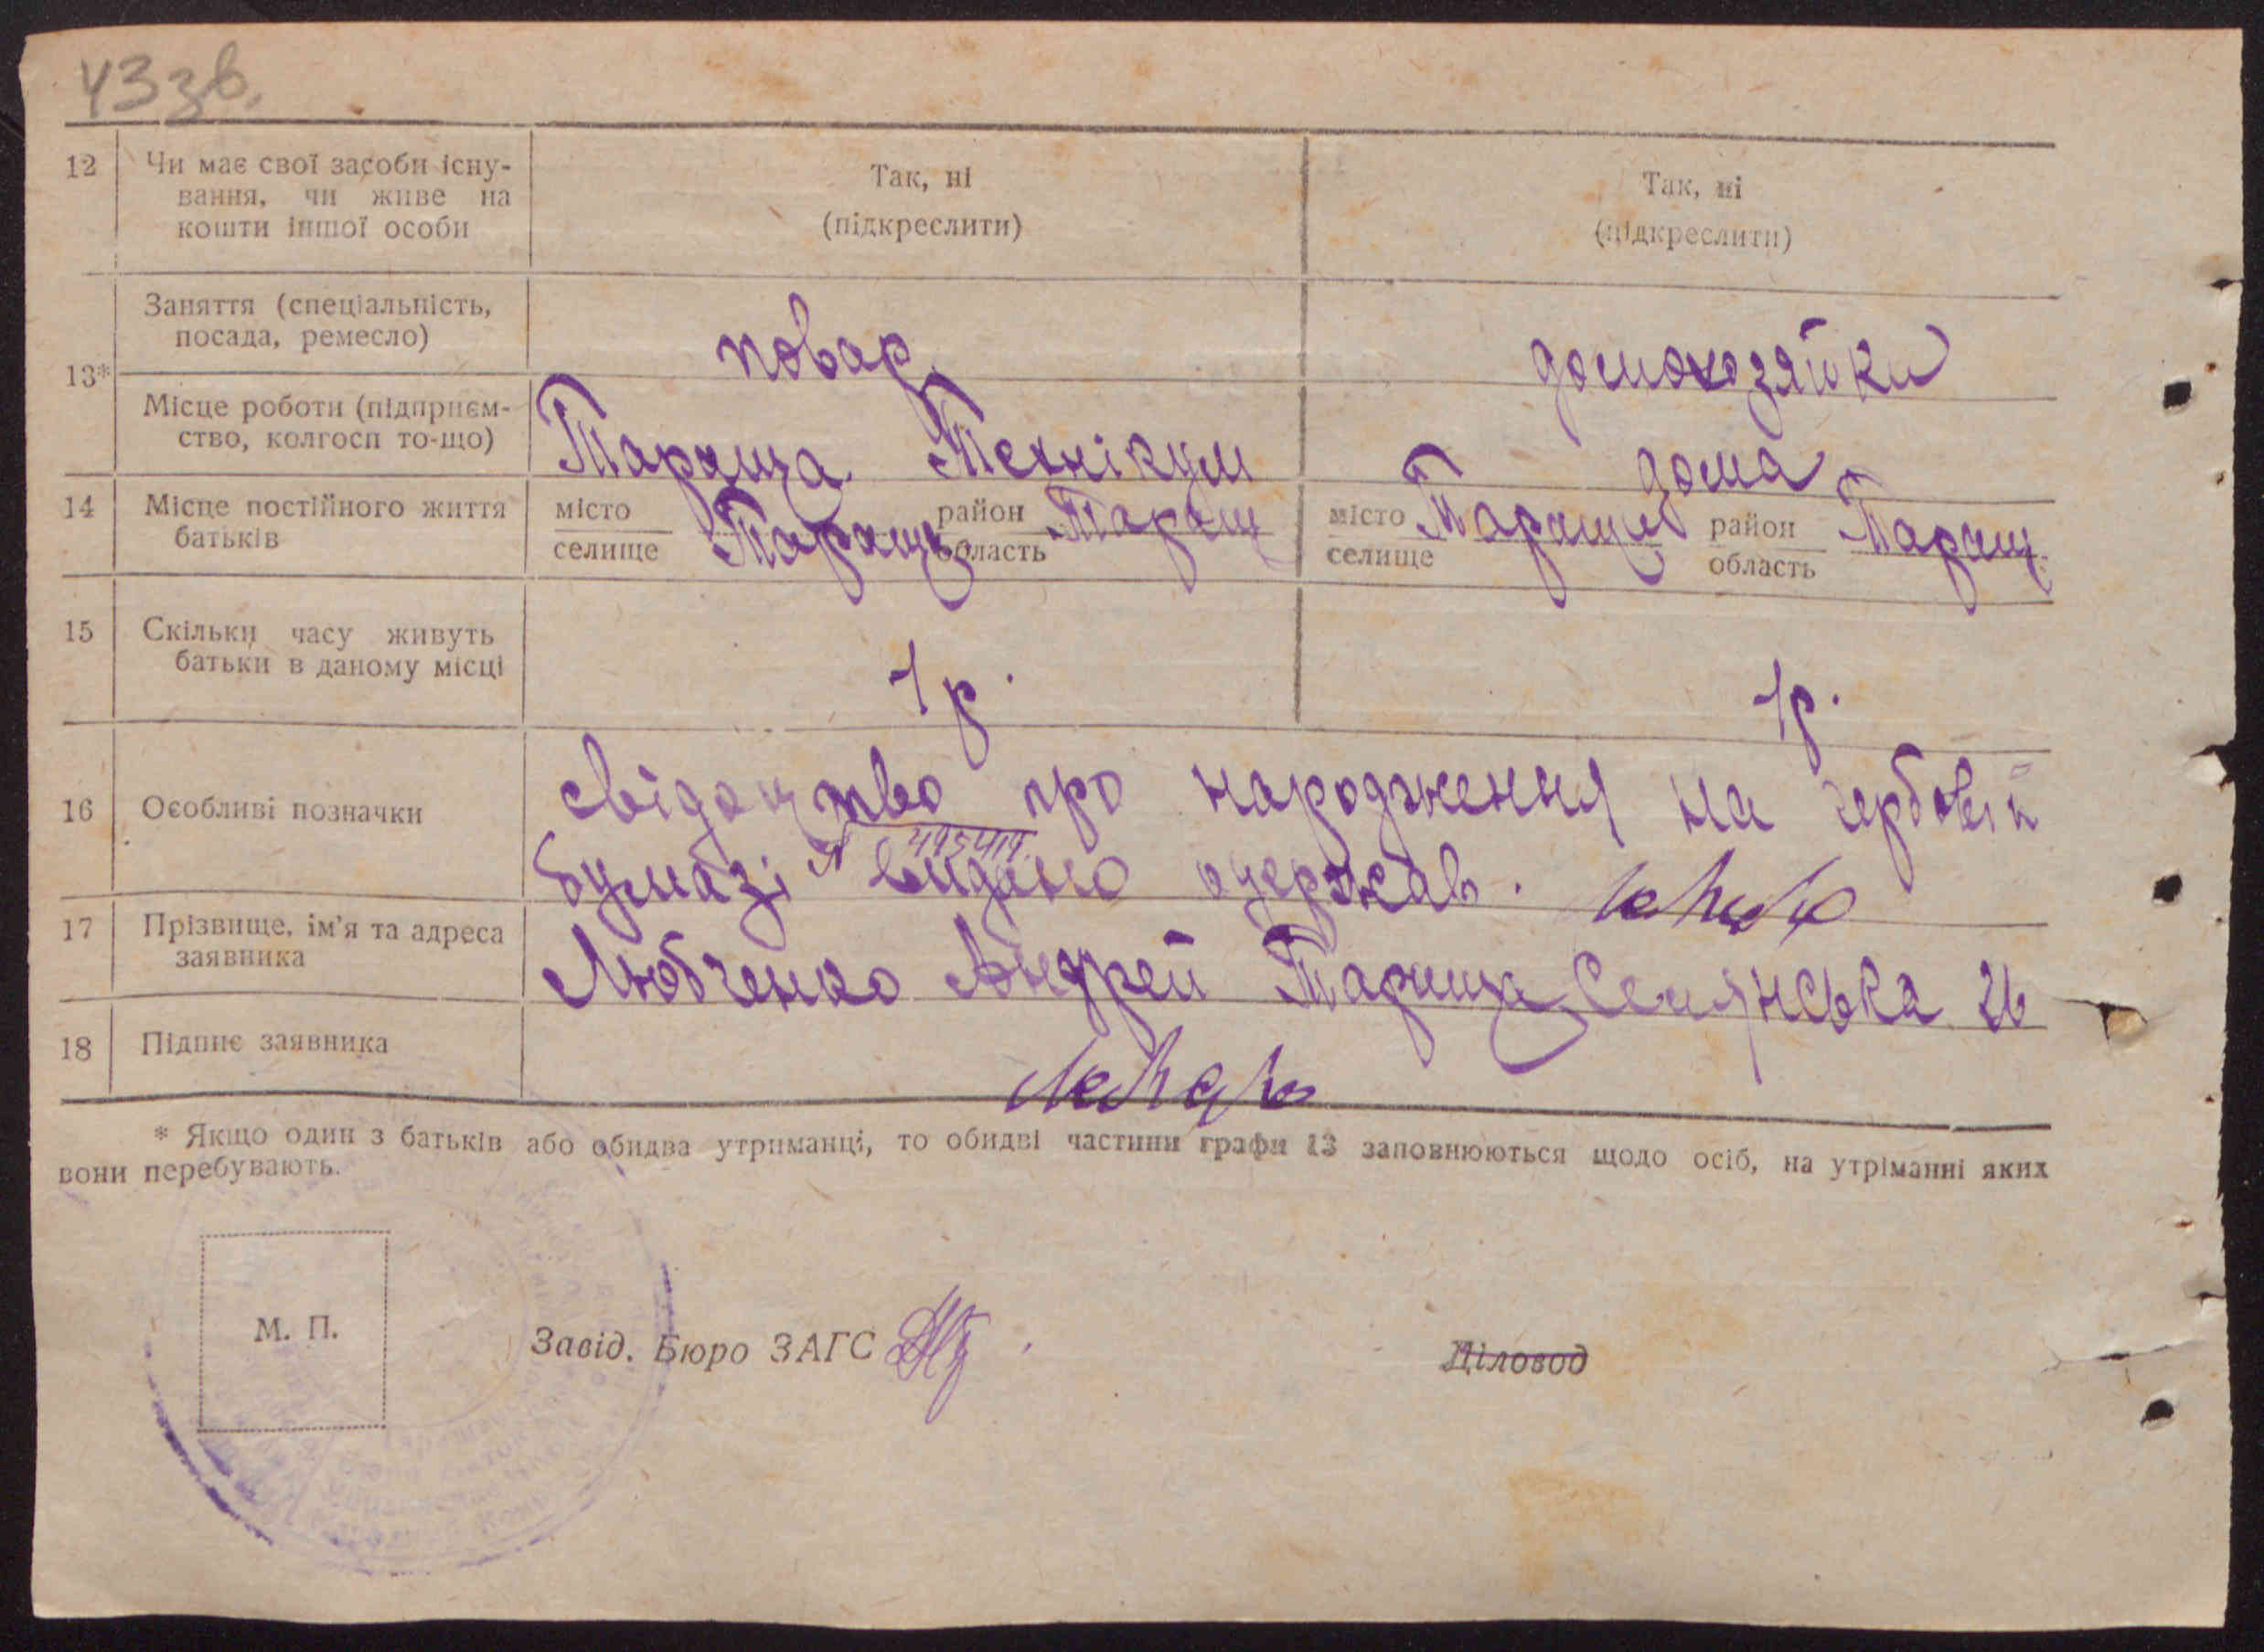 43 зв.
12 Чи має свої засоби існу- Так, ні Так, ні
вання, чи живе на (підкреслити) (підкреслити)
кошти іншої особи
Заняття (спеціальність, повар домохозяйки
посада, ремесло)
13*
Місце роботи (підприєм- Тараща Технікум дома
ство, колгосп то-що)
14 Місце постійного життя місто Тараща район Таращ місто Тараща район Таращ
батьків селище область селище область
15 Скільки часу живуть 1 р. 1 р.
батьки в даному місці
16 Особливі позначки свідоцтво про народження на гербовій
бумазі № видано одержав.
17 Прізвище, ім'я та адреса Любченко Андрей Тараща Селянська 26
заявника
18 Підпис заявника
* Якщо один з батьків або обидва утриманці, то обидві частини графи 13 заповнюються щодо осіб, на утріманні яких
вони перебувають.
М. П.
Завід. Бюро ЗАГС Діловод